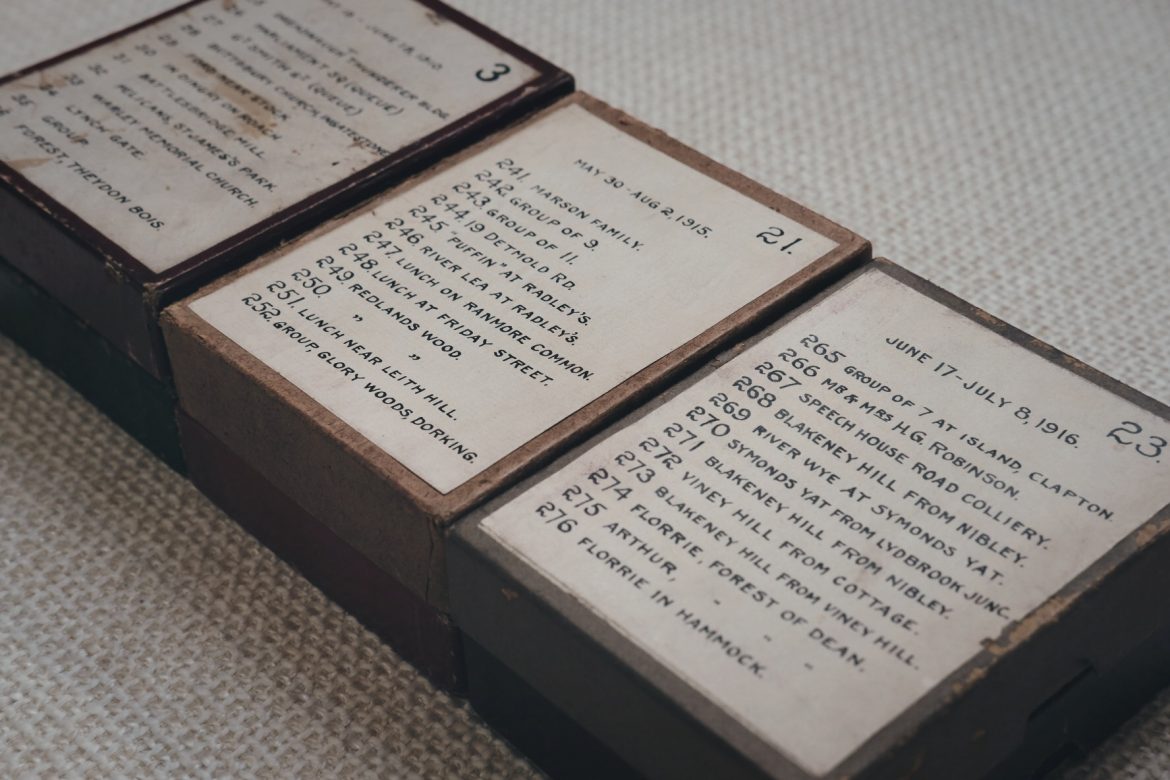 3
JUNE 18, 1910.
THUNDERER BLDG.
PARLIAMENT SQ (QUEUE)
67 SMITH ST (QUEUE)
BUTTSBURY CHURCH, INGATESTONE
IN DINGHY ON ROACH
BATTLESBRIDGE MILL.
PELICANS, ST JAMES'S PARK.
MARLEY MEMORIAL CHURCH.
LYNCH GATE.
GROUP.
FOREST, THEYDON BOIS.
MAY 30-AUG 2, 1915.
21.
241. MARSON FAMILY.
242. GROUP OF 9.
243. GROUP OF 11.
244. 19 DETMOLD RD.
245 "PUFFIN" AT RADLEY'S.
246 RIVER LEA AT RADLEY'S.
247. LUNCH ON RANMORE COMMON.
248. LUNCH AT FRIDAY STREET.
249. REDLANDS WOOD.
250. " "
251. LUNCH NEAR LEITH HILL.
252. GROUP, GLORY WOODS, DORKING.
JUNE 17-JULY 8, 1916.
23.
265 GROUP OF 7 AT ISLAND, CLAPTON.
266 MR & MRS H.G. ROBINSON.
267 SPEECH HOUSE ROAD COLLIERY.
268 BLAKENEY HILL FROM NIBLEY.
269 RIVER WYE AT SYMONDS YAT.
270 SYMONDS YAT FROM LYDBROOK JUNC.
271 BLAKENEY HILL FROM NIBLEY.
272 VINEY HILL FROM COTTAGE.
273 BLAKENEY HILL FROM VINEY HILL.
274 FLORRIE, FOREST OF DEAN.
275 ARTHUR, " " "
276 FLORRIE IN HAMMOCK.